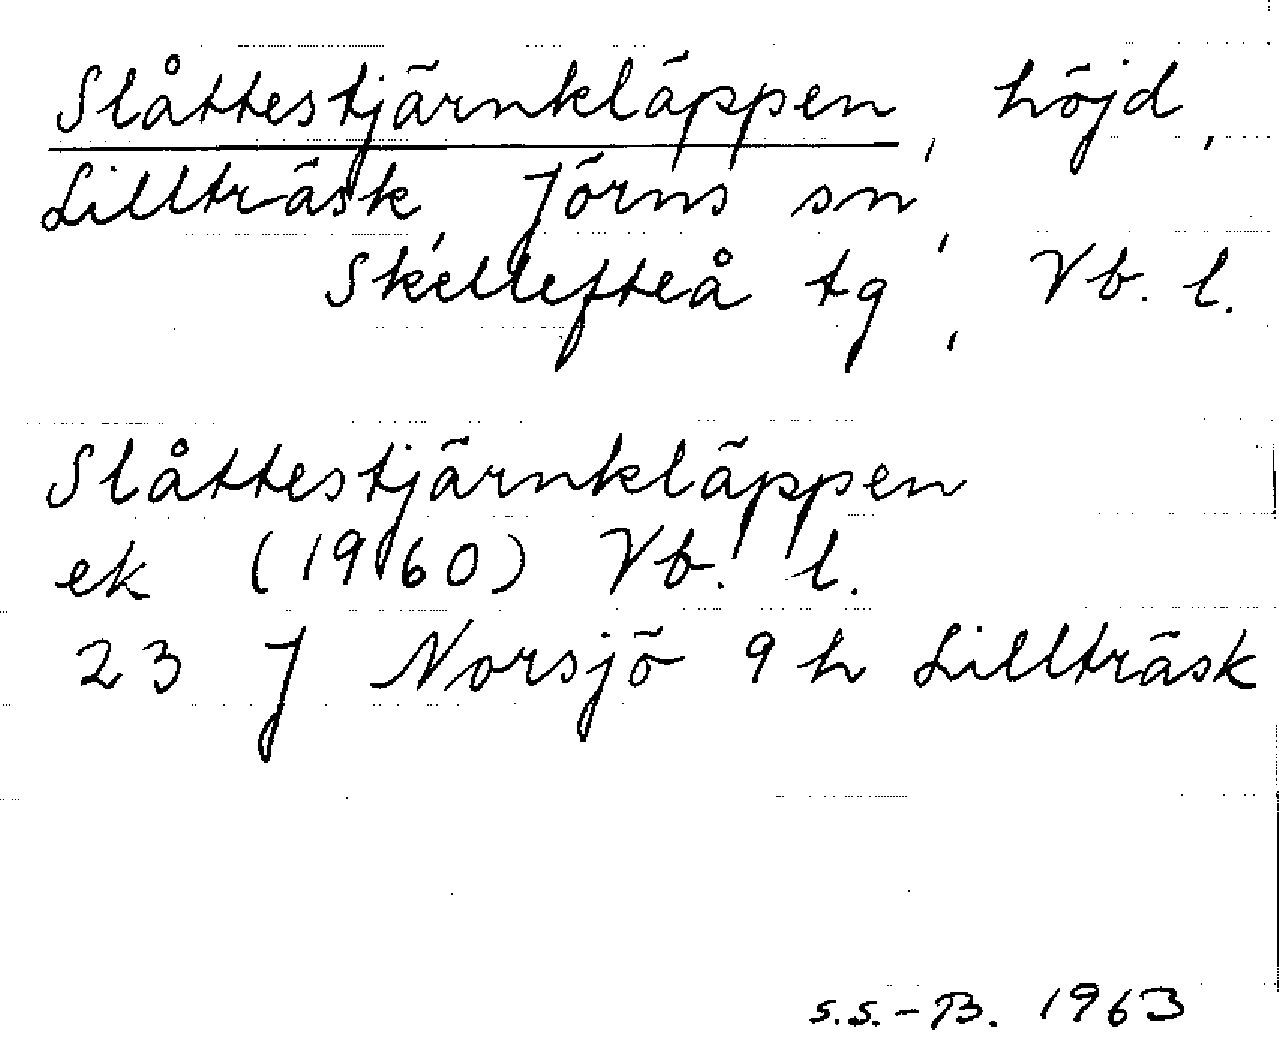 Slåttestjärnkläppen, höjd,
Lillträsk, Jörns sn,
Skellefteå tg, Vb. l.
Slåttestjärnkläppen
ek (1960) Vb. l.
23 J Norsjö 9 h Lillträsk
S.S.-B. 1963